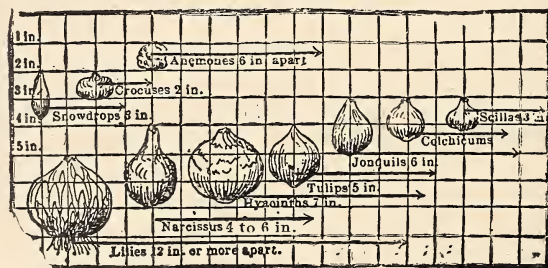 1 in.
2 in.
Anemones 6 in apart
3 in.
Crocuses 2 in.
Snowdrops 3 in.
4 in.
Scillas 3 in
Colchicums
5 in.
Jonquils 6 in.
Tulips 5 in.
Hyacinths 7 in.
Narcissus 4 to 6 in.
Lilies 12 in. or more apart.